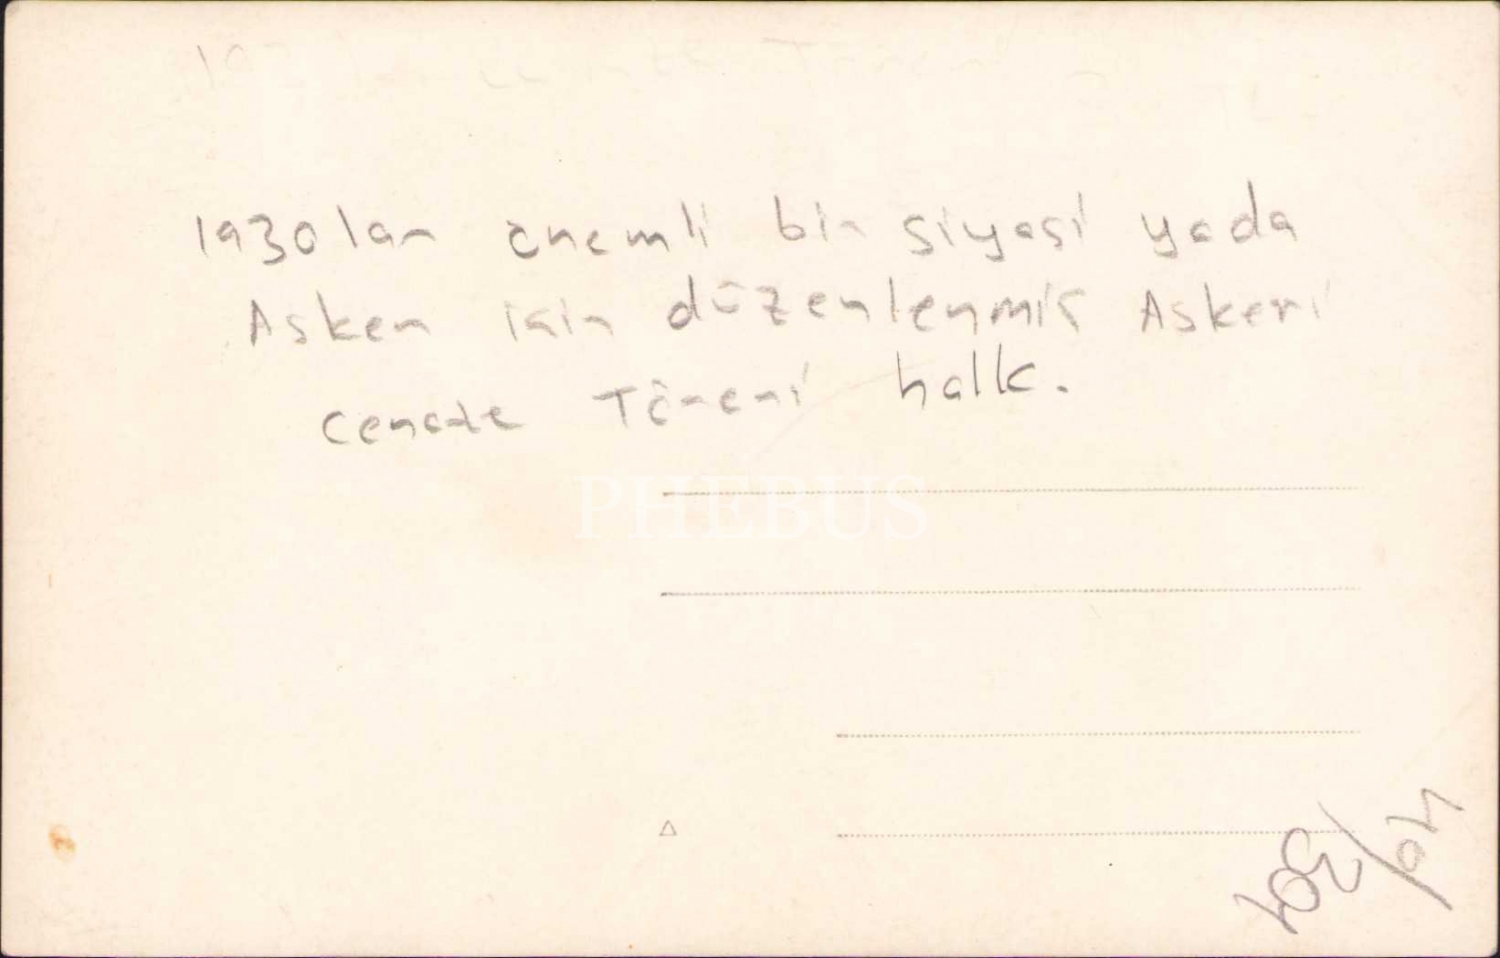 1930lar önemli bir siyasi yada
Asker için düzenlenmiş Askeri
cenaze Töreni halk.
PHEBUS
304